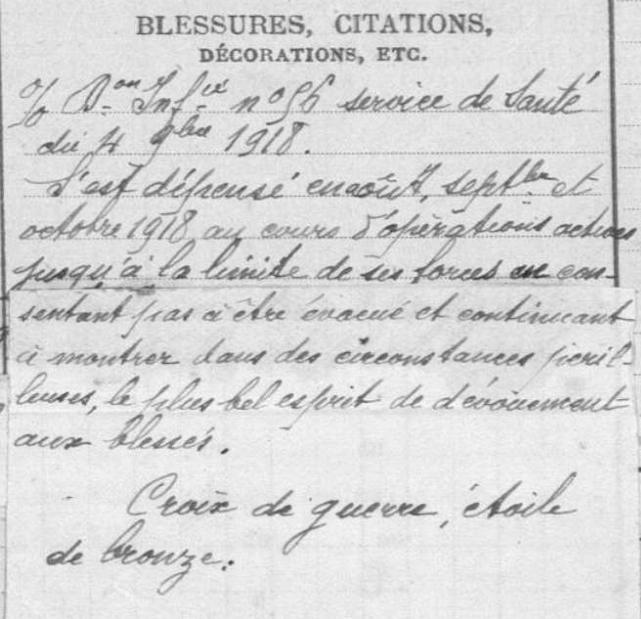 BLESSURES, CITATIONS,
DÉCORATIONS, ETC.
% B.on Inf.ie n° 56 service de Santé
du 4 9bre 1918.
S'est dépensé en août, septbre et
octobre 1918 au cours d'opérations actives
jusqu'à la limite de ses forces en con-
sentant pas à être évacué et continuant
à montrer dans des circonstances péril-
leuses, le plus bel esprit de dévouement
aux blessés.
Croix de guerre, étoile
de bronze.